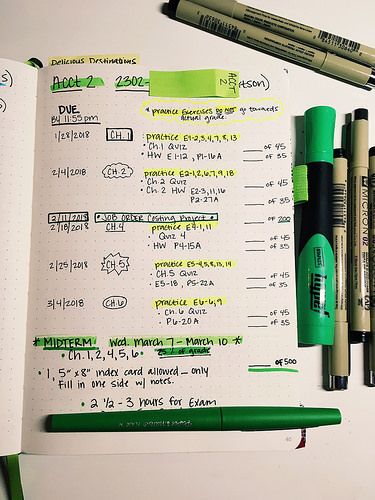 Delicious Destinations
Acct 2 2302- tson)
ACCT 2
DUE
BY 11:55 pm
* practice Exercises DO NOT go towards
actual grade.
1/28/2018 CH. 1 : practice E1-2,3,4,7,8,13
• Ch. 1 Quiz ___ OF 45
• HW E1-12, P1-16A ___ OF 35
2/4/2018 CH. 2 : practice E2-1,2,6,7,9,18
• Ch. 2 Quiz ___ OF 45
• Ch. 2 HW E2-3,11,16
P2-27A ___ OF 35
2/11/2018 * JOB ORDER Costing Project * ___ OF 200
2/18/2018 CH. 4 practice E4-1,11
• Quiz 4 ___ OF 45
• HW P4-15A ___ OF 35
2/25/2018 CH. 5 practice E5-4,5,8,13,14
• CH. 5 Quiz ___ OF 45
• E5-18, P5-22A ___ OF 35
3/4/2018 CH. 6 practice E6-6,9
• Ch. 6 Quiz ___ OF 45
• P6-20A ___ OF 35
* MIDTERM Wed. March 7 - March 10 *
• Ch. 1, 2, 4, 5, 6 • 25% of grade
___ OF 500
• 1, 5" x 8" index card allowed — only
fill in one side w/ notes.
• 2 1/2 - 3 hours for Exam
hype!
MICRON